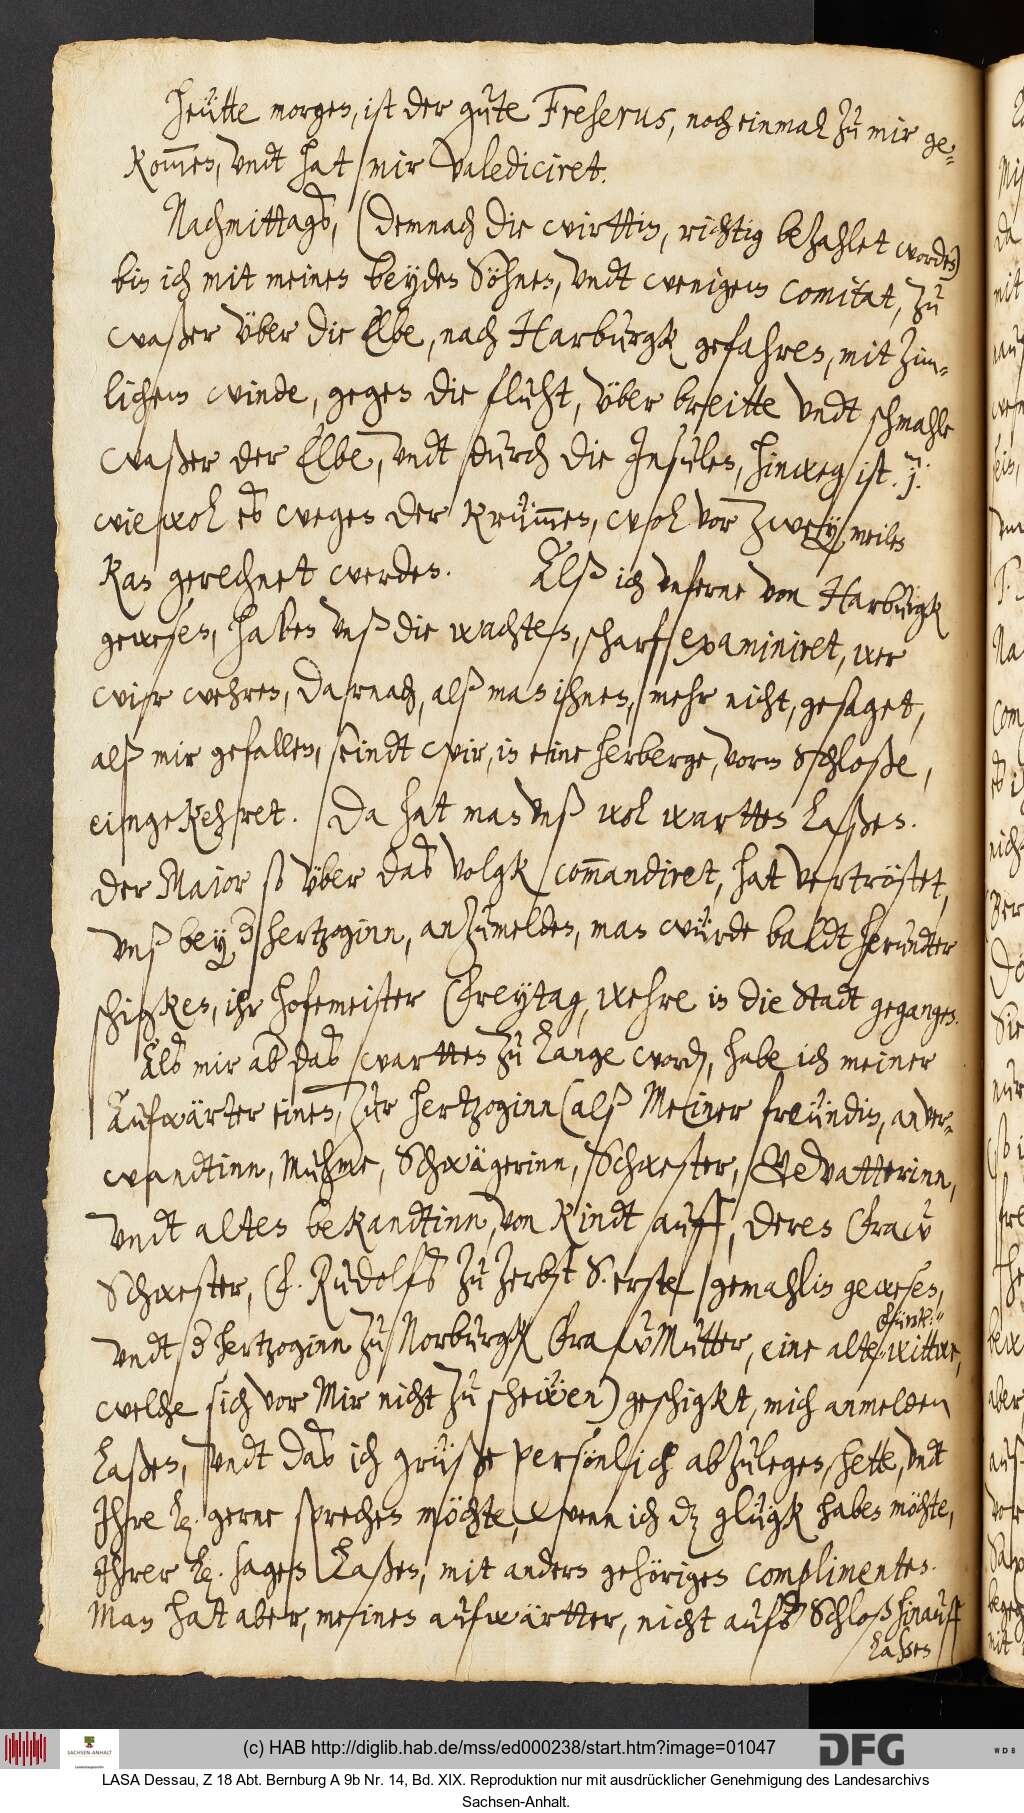 Heütte morgen, ist der gute Freherus, noch einmal zu mir ge-
kom̅en, vndt hat mir valediciret.
Nachmittags, (demnach die wirttin, richtig bezahlet worden)
bin ich mit meinen beyden Söhnen, vndt wenigem comitat, zu
waßer vber die Elbe, nach Harburgk gefahren, mit zim-
lichem winde, gegen die fluht, vber breitte vndt schmahle
waßer der Elbe, vndt durch die Insulen, hinweg ist . j.
wiewol es wegen der Krüm̅en, wol vor zwey meilen
kan gerechnet werden. Alß ich vnferne von Harburgk
gewesen, haben vnß die wachten, scharf examiniret, wer
wir wehren, darnach, alß man ihnen, mehr nicht, gesaget,
alß mir gefallen, seindt wir, in eine herberge, vorm Schloße,
eingekehret. Da hat man vnß wol wartten laßen.
der Major so vber das volgk com̅andiret, hat vertröstet,
vnß bey d hertzoginn, anzumelden, man würde baldt herundter
schigken, ihr hofemeister Freytag, wehre in die Stadt gegangen.
Als mir ab das wartten zu lange word, habe ich meiner
Aufwärter einen, zur hertzoginn (alß Meiner freündin, anver-
wandtinn, Muhme, Schwägerinn, Schwester, Gevatterinn,
vndt alten bekandtinn, von Kindt auff, deren Fraw
Schwester, F. Rudolfs zu Zerbst S. erste gemahlin gewesen,
vndt d hertzoginn zu Norburgk Fraw Mutter, eine alte
fürstl:
wittwe,
welche sich vor Mir nicht zu schewen) geschigkt, mich anmelden
laßen, vndt das ich grüße persönlich abzulegen hette, vndt
Ihre L. gerne sprechen möchte, wenn ich dz glügk haben möchte,
Ihrer L. sagen laßen, mit andern gehörigen complimenten.
Man hat aber, meinen aufwärtter, nicht aufs Schloß hinauff
laßen
(c) HAB http://diglib.hab.de/mss/ed000238/start.htm?image=01047
SACHSEN-ANHALT
DFG
WDB
LASA Dessau, Z 18 Abt. Bernburg A 9b Nr. 14, Bd. XIX. Reproduktion nur mit ausdrücklicher Genehmigung des Landesarchivs
Sachsen-Anhalt.